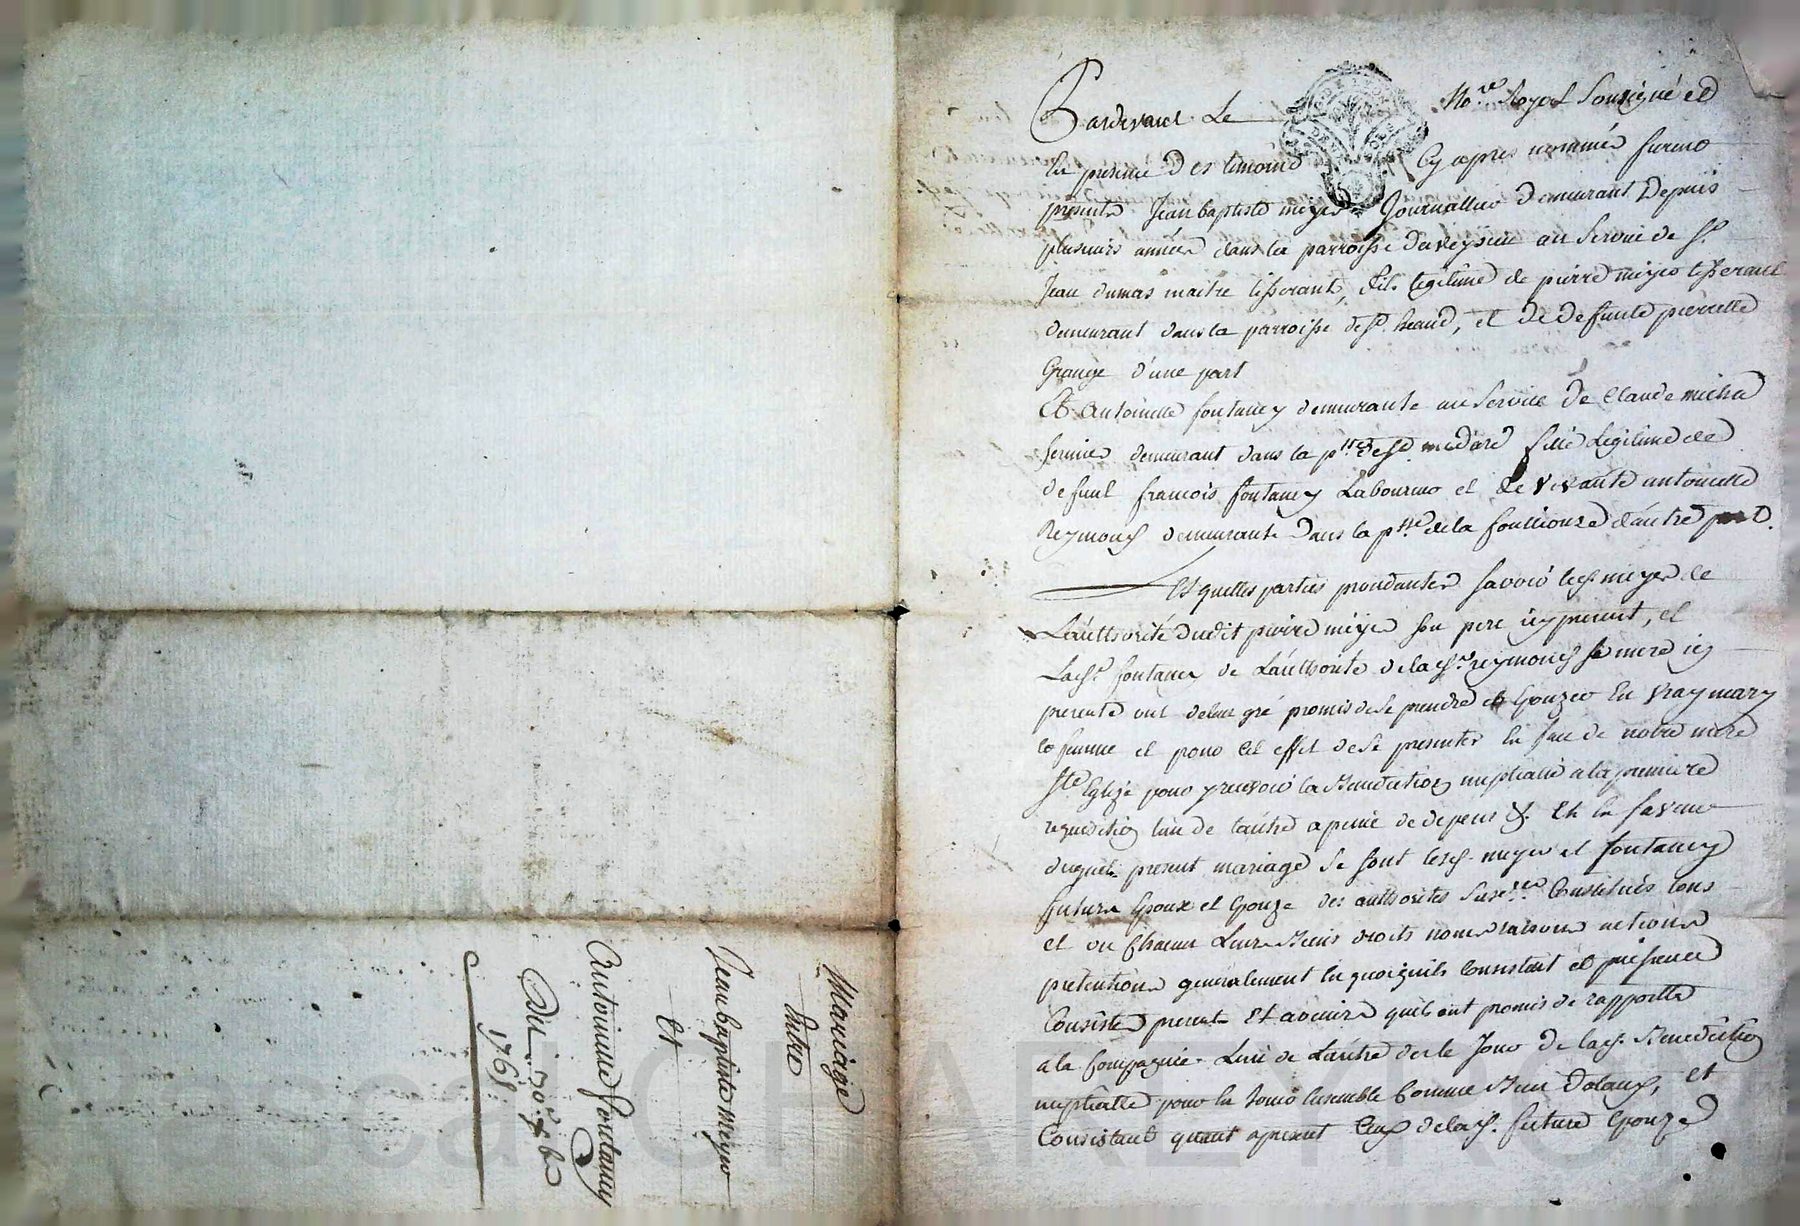 Pardevant Le No.re Royal Soussigné et
En presence des temoins Cy apres nommés furent
presents Jean baptiste meyer Journallier demeurant Depuis
plusieurs année dans la parroisse daveyzieu au service de S.r
Jean dumas maitre tisserant, fils legitime de pierre meyer tisserant
demeurant dans la parroisse de St. heand, et de defunte pierrette
Grange d'une part
Et Antoinette fontaney demeurante au service de Claude micha
fermier demeurant dans la p.sse de St medard fille Legitime de
defunt francois fontaney Laboureur et de vivante antoinette
Reymond demeurante dans la p.sse de la fouillouze d'autre part.
Lesquelles parties procedantes savoir led. meyer de
L'authorité dudit pierre meyer son pere icy present, et
Lad.e fontaney de L'authorité de lad.e reymond sa mere icy
presente ont de leur gré promis de se prendre et Epouzer En vray mary
et femme et pour cet effet de se presenter En face de notre mere
Ste Eglize pour y recevoir la Benediction nuptialle a la premiere
requisition l'un de l'autre a peine de depens &. Et En faveur
duquel present mariage se sont lesd. meyer et fontaney
futurs Epoux et Epouze des authorités Susd.tes Constitués tous
et un chacun Leurs Biens droits noms raisons actions
pretentions generalement En quoi qu'ils Consistent et puissent
Consister present Et avenir qu'ils ont promis de rapporter
a la Compagnie L'un de L'autre des le Jour de lad. Benediction
nuptialle pour En Jouir Ensemble Comme Bien Dotaux, et
Consistant quant a present Ceux de lad. future Epouze
Mariage
Entre
Jean baptiste meyer
Et
Antoinette fontaney
Du 30e 7bre
1768